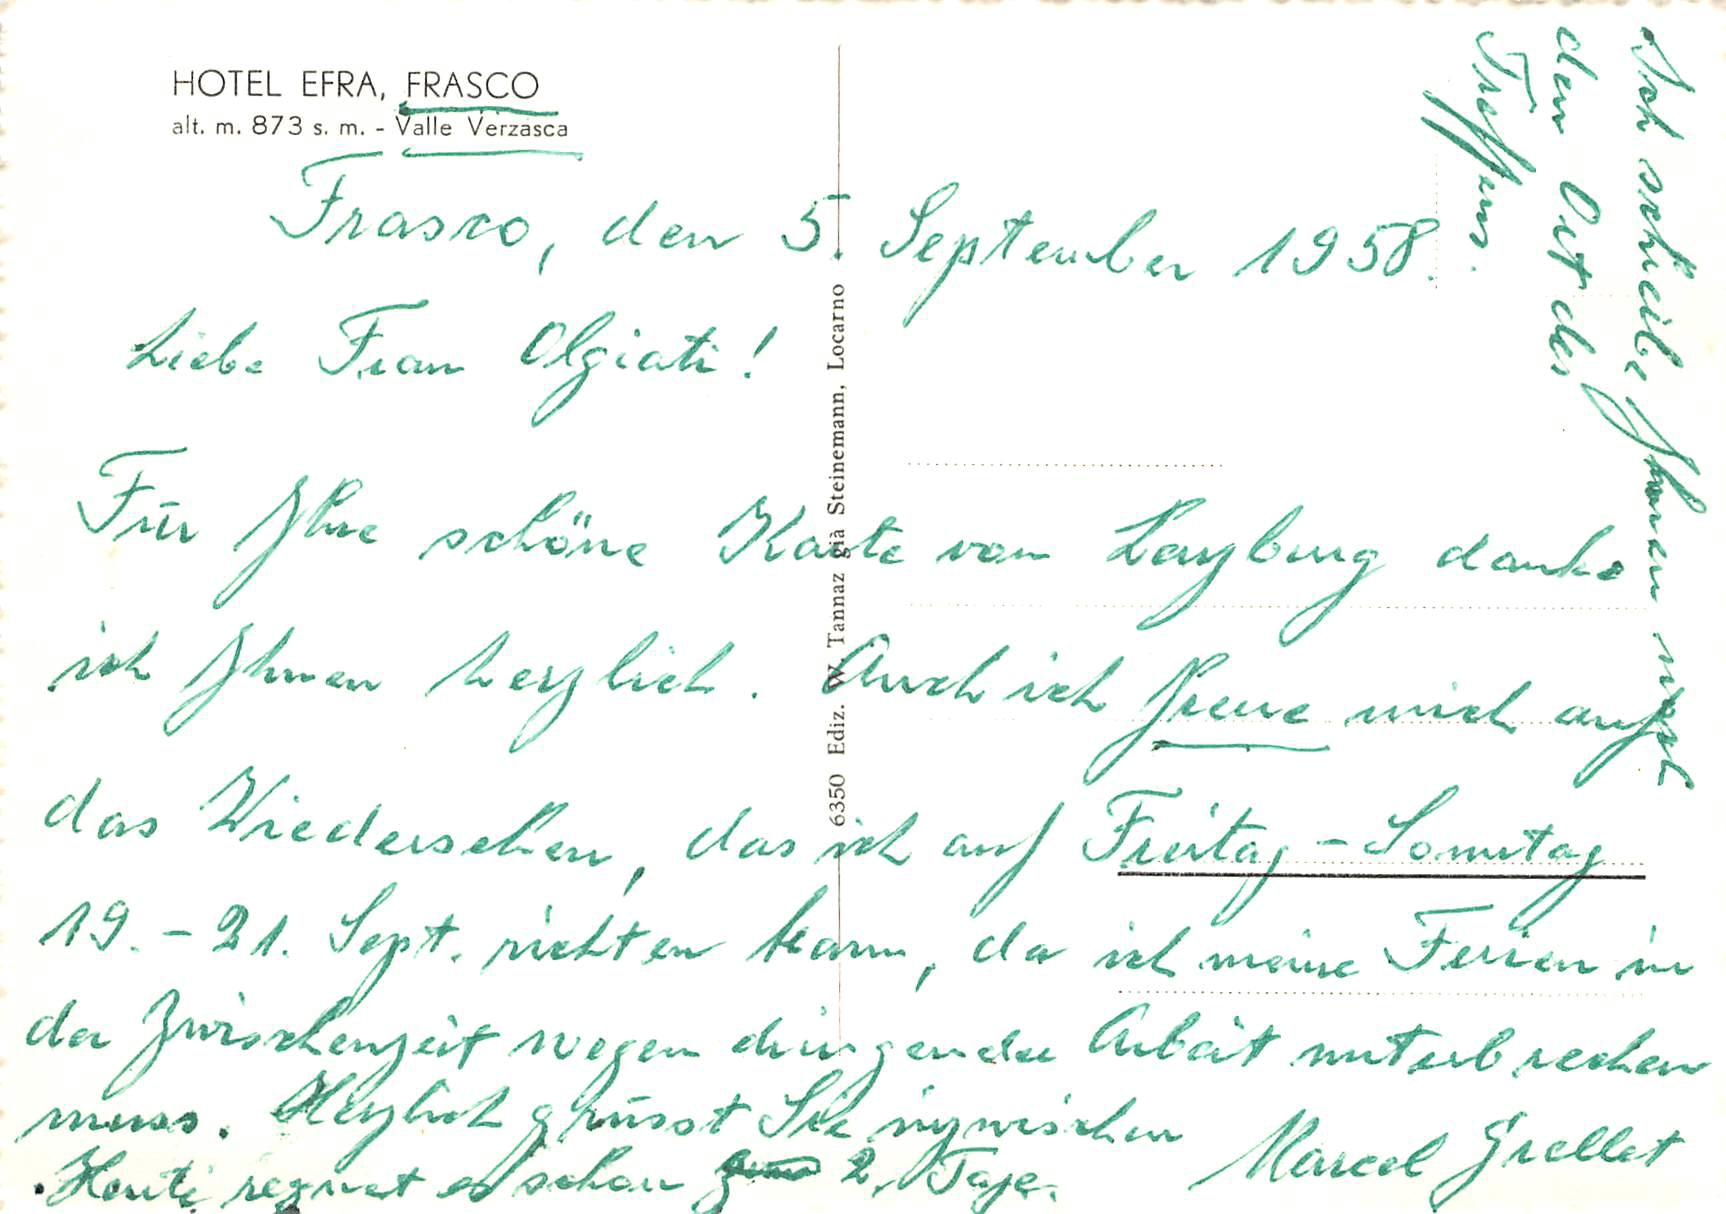 HOTEL EFRA, FRASCO
alt. m. 873 s. m. - Valle Verzasca
Frasco, den 5. September 1958.
Liebe Frau Olgiati!
Für Ihre schöne Karte von Lenzburg danke
ich Ihnen herzlich. Auch ich freue mich auf
das Wiedersehen, das ich auf Freitag - Sonntag
19. - 21. Sept. richten kann, da ich meine Ferien in
der Zwischenzeit wegen dringender Arbeit unterbrechen
muss. Herzlich grüsst Sie inzwischen
Marcel Grellet
Heute regnet es schon 2. Tage.
Ich schreibe Ihnen noch
den Ort des
Treffens.
6350 Ediz. W. Tannaz già Steinemann, Locarno